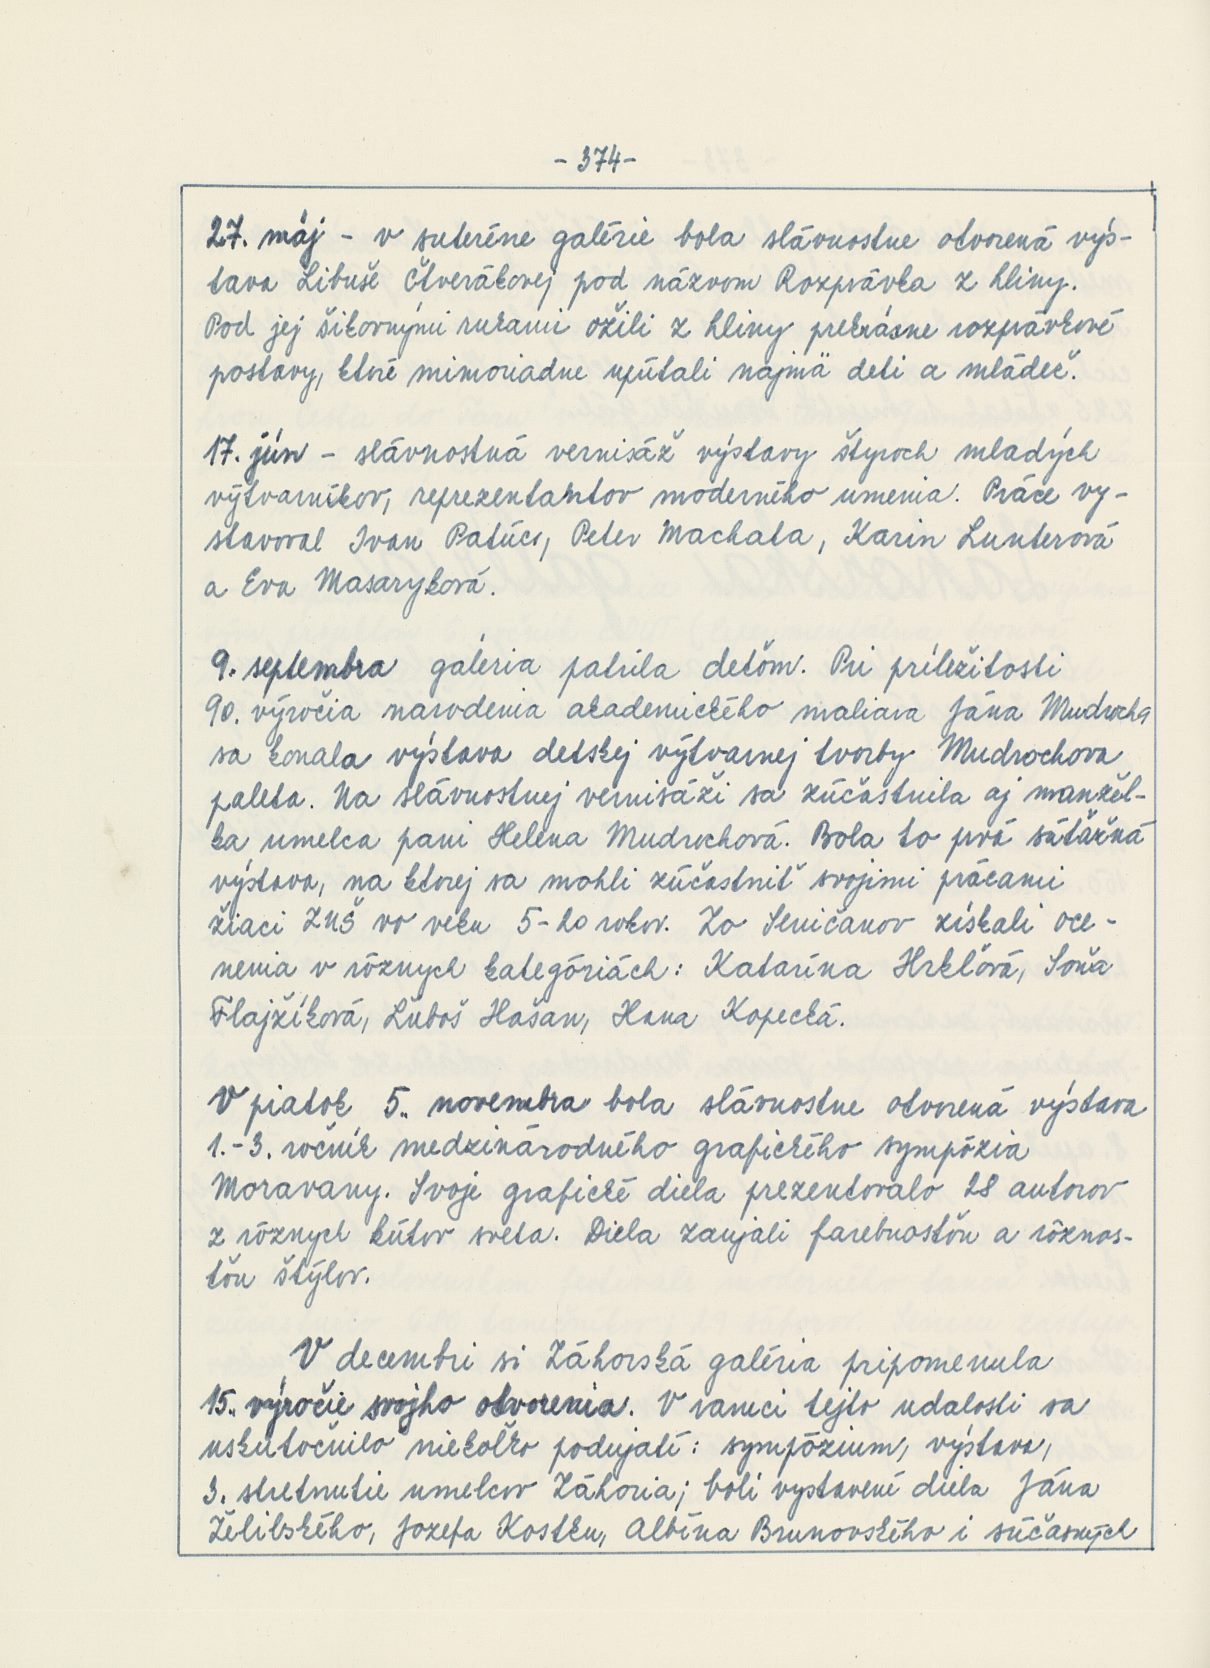 - 374 -
27. máj - v suteréne galérie bola slávnostne otvorená výs-
tava Libuše Čtverákovej pod názvom Rozprávka z hliny.
Pod jej šikovnými rukami ožili z hliny prekrásne rozprávkové
postavy, ktoré mimoriadne upútali najmä deti a mládež.
17. jún - slávnostná vernisáž výstavy štyroch mladých
výtvarníkov, reprezentantov moderného umenia. Práce vy-
stavoval Ivan Patúcs, Peter Machata, Karin Lunterová
a Eva Masaryková.
9. septembra galéria patrila deťom. Pri príležitosti
90. výročia narodenia akademického maliara Jána Mudrocha
sa konala výstava detskej výtvarnej tvorby Mudrochova
paleta. Na slávnostnej vernisáži sa zúčastnila aj manžel-
ka umelca pani Helena Mudrochová. Bola to prvá súťažná
výstava, na ktorej sa mohli zúčastniť svojimi prácami
žiaci ZUŠ vo veku 5-20 rokov. Zo Seničanov získali oce-
nenia v rôznych kategóriách: Katarína Hrkľová, Soňa
Flajžíková, Ľuboš Hašan, Hana Kopecká.
V piatok 5. novembra bola slávnostne otvorená výstava
1.-3. ročník medzinárodného grafického sympózia
Moravany. Svoje grafické diela prezentovalo 28 autorov
z rôznych kútov sveta. Diela zaujali farebnosťou a rôznos-
ťou štýlov.
V decembri si Záhorská galéria pripomenula
15. výročie svojho otvorenia. V rámci tejto udalosti sa
uskutočnilo niekoľko podujatí: sympózium, výstava,
3. stretnutie umelcov Záhoria; boli vystavené diela Jána
Želibského, Jozefa Kostku, Albína Brunovského i súčasných